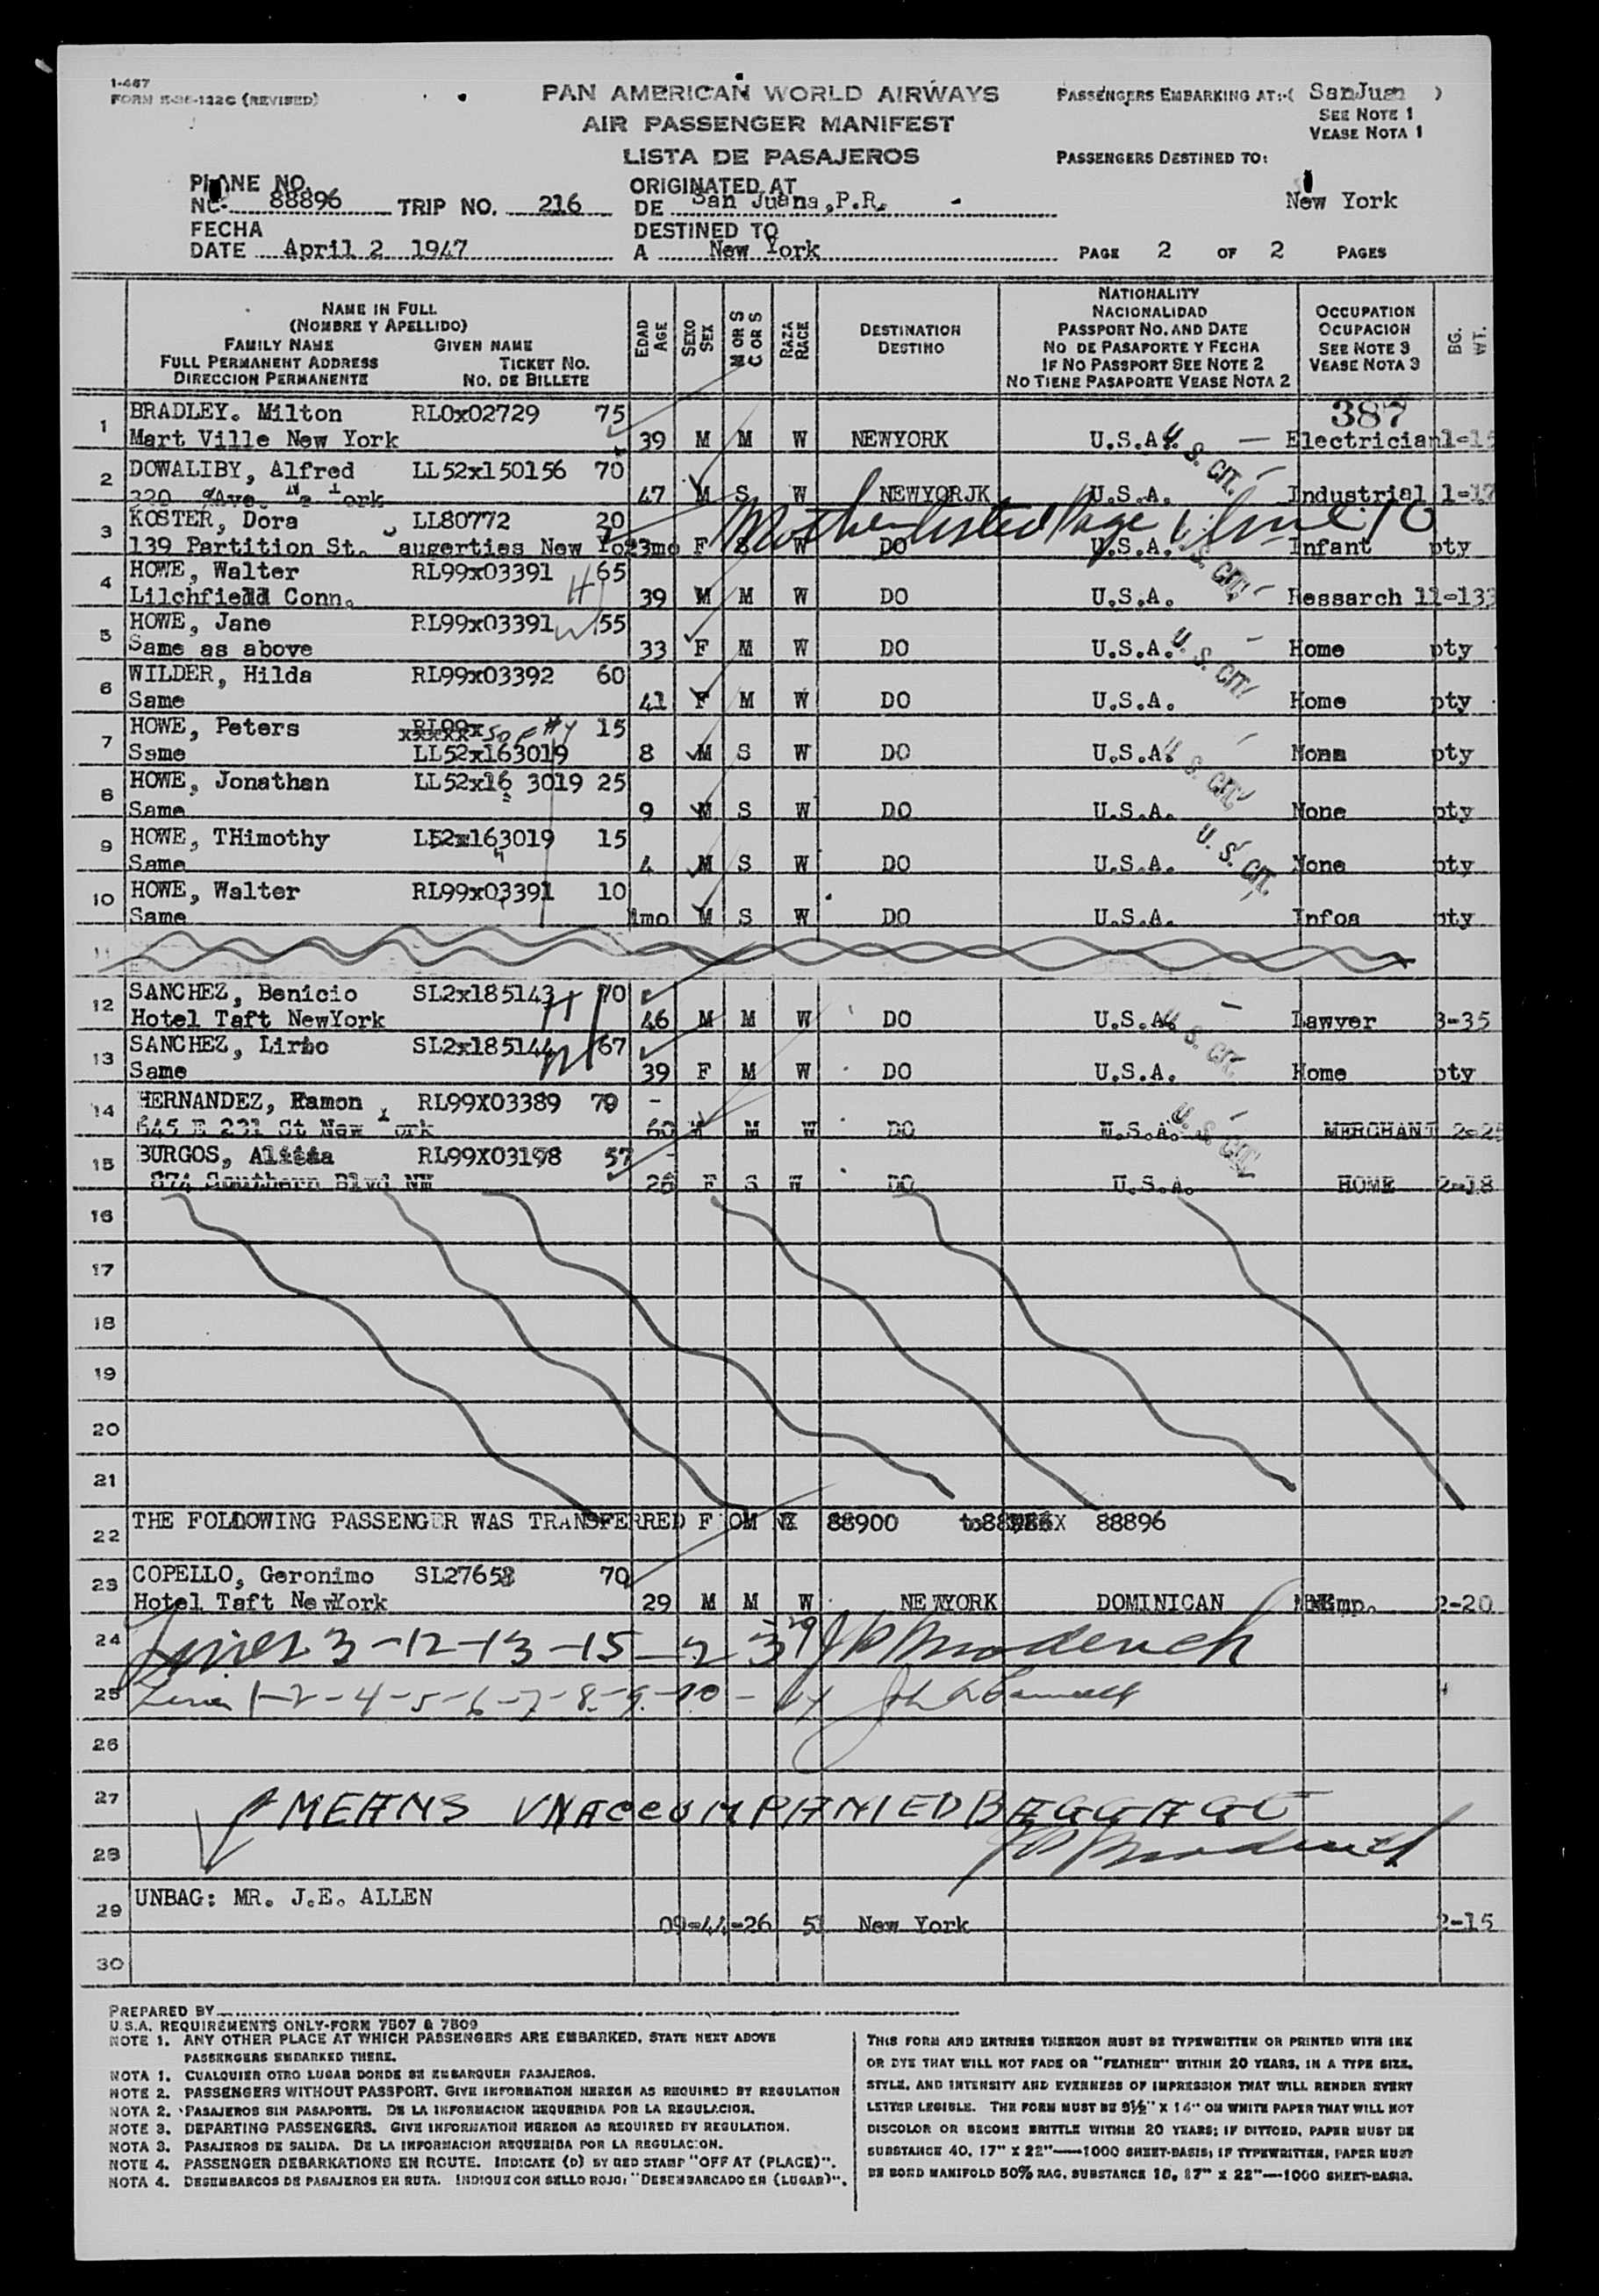 1-467
FORM (REVISED)
PAN AMERICAN WORLD AIRWAYS
AIR PASSENGER MANIFEST
LISTA DE PASAJEROS
PASSENGERS EMBARKING AT:-( SanJuan )
SEE NOTE 1
VEASE NOTA 1
PASSENGERS DESTINED TO:
New York
PLANE NO.
NO. 88896 TRIP NO. 216
ORIGINATED AT
DE San Juana,P.R.
FECHA
DATE April 2 1947
DESTINED TO
A New York
PAGE 2 OF 2 PAGES
NAME IN FULL
(NOMBRE Y APELLIDO)
FAMILY NAME GIVEN NAME
FULL PERMANENT ADDRESS TICKET NO.
DIRECCION PERMANENTE NO. DE BILLETE
EDAD AGE
SEXO SEX
M OR S C OR S
RAZA RACE
DESTINATION
DESTINO
NATIONALITY
NACIONALIDAD
PASSPORT NO. AND DATE
NO DE PASAPORTE Y FECHA
IF NO PASSPORT SEE NOTE 2
NO TIENE PASAPORTE VEASE NOTA 2
OCCUPATION
OCUPACION
SEE NOTE 3
VEASE NOTA 3
BG. WT.
387
1 BRADLEY. Milton RL0x02729 75
Mart Ville New York 39 M M W NEWYORK U.S.A. Electrician
U. S. CIT.
2 DOWALIBY, Alfred LL52x150156 70
47 M S W NEWYORJK U.S.A. Industrial 1-17
Mother listed Page 1 line 10
3 KOSTER, Dora LL80772 20
139 Partition St. augerties New Yo 3mo F S W DO U.S.A. Infant pty
U. S. CIT.
4 HOWE, Walter RL99x03391 H 65
Lilchfield Conn. 39 M M W DO U.S.A. Ressarch 11-133
5 HOWE, Jane RL99x03391 W 55
Same as above 33 F M W DO U.S.A. Home pty
U. S. CIT.
6 WILDER, Hilda RL99x03392 60
Same 41 F M W DO U.S.A. Home pty
7 HOWE, Peters RL99x S of #4 15
Same LL52x163019 8 M S W DO U.S.A. None pty
U. S. CIT.
8 HOWE, Jonathan LL52x16 3019 25
Same 9 M S W DO U.S.A. None pty
9 HOWE, THimothy L52x163019 15
Same 4 M S W DO U.S.A. None pty
U. S. CIT.
10 HOWE, Walter RL99x03391 10
Same 1mo M S W DO U.S.A. Infoa pty
11
12 SANCHEZ, Benicio SL2x185143 H 70
Hotel Taft NewYork 46 M M W DO U.S.A. Lawyer 3-35
13 SANCHEZ, SL2x185144 W 67
Same 39 F M W DO U.S.A. Home pty
U. S. CIT.
14 HERNANDEZ, Ramon RL99X03389 70
645 E 231 St New York 60 M M W DO U.S.A. MERCHANT 2-25
15 BURGOS, RL99X03198 57
874 Southern Blvd NW 26 F S W DO U.S.A. HOME 2-18
U. S. CIT.
16
17
18
19
20
21
22 THE FOLLOWING PASSENGER WAS TRANSFERRED F OM 88900 88896
23 COPELLO, Geronimo 70
Hotel Taft NewYork 29 M M W NEWYORK DOMINICAN Emp. 2-20
24 Lines 3-12-13-15-23 29 J P Broderick
25 Line 1-2-4-5-6-7-8-9-10-14
26
27 MEANS UNACCOMPANIED BAGGAGE
28 J P Broderick
29 UNBAG: MR. J.E. ALLEN
09-44-26 53 New York 2-15
30
PREPARED BY
U.S.A. REQUIREMENTS ONLY-FORM 7507 & 7509
NOTE 1. ANY OTHER PLACE AT WHICH PASSENGERS ARE EMBARKED, STATE NEXT ABOVE
PASSENGERS EMBARKED THERE.
NOTA 1. CUALQUIER OTRO LUGAR DONDE SE EMBARQUEN PASAJEROS.
NOTE 2. PASSENGERS WITHOUT PASSPORT. GIVE INFORMATION HEREON AS REQUIRED BY REGULATION
NOTA 2. PASAJEROS SIN PASAPORTE. DE LA INFORMACION REQUERIDA POR LA REGULACION.
NOTE 3. DEPARTING PASSENGERS. GIVE INFORMATION HEREON AS REQUIRED BY REGULATION.
NOTA 3. PASAJEROS DE SALIDA. DE LA INFORMACION REQUERIDA POR LA REGULACION.
NOTE 4. PASSENGER DEBARKATIONS EN ROUTE. INDICATE (D) BY RED STAMP "OFF AT (PLACE)".
NOTA 4. DESEMBARCOS DE PASAJEROS EN RUTA. INDIQUE CON SELLO ROJO: "DESEMBARCADO EN (LUGAR)".
THIS FORM AND ENTRIES THEREON MUST BE TYPEWRITTEN OR PRINTED WITH INK
OR DYE THAT WILL NOT FADE OR "FEATHER" WITHIN 20 YEARS, IN A TYPE SIZE,
STYLE, AND INTENSITY AND EVENNESS OF IMPRESSION THAT WILL RENDER EVERY
LETTER LEGIBLE. THE FORM MUST BE 8½" X 14" ON WHITE PAPER THAT WILL NOT
DISCOLOR OR BECOME BRITTLE WITHIN 20 YEARS; IF DITTOED, PAPER MUST BE
SUBSTANCE 40, 17" X 22"—1000 SHEET-BASIS; IF TYPEWRITTEN, PAPER MUST
BE BOND MANIFOLD 50% RAG, SUBSTANCE 16, 17" X 22"—1000 SHEET-BASIS.